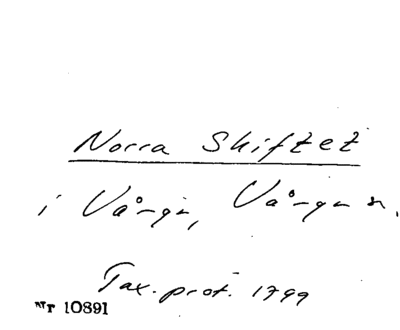 Norra Skiftet
i Vånga, Vånga sn.
Tax. prot. 1799
Nr 10891